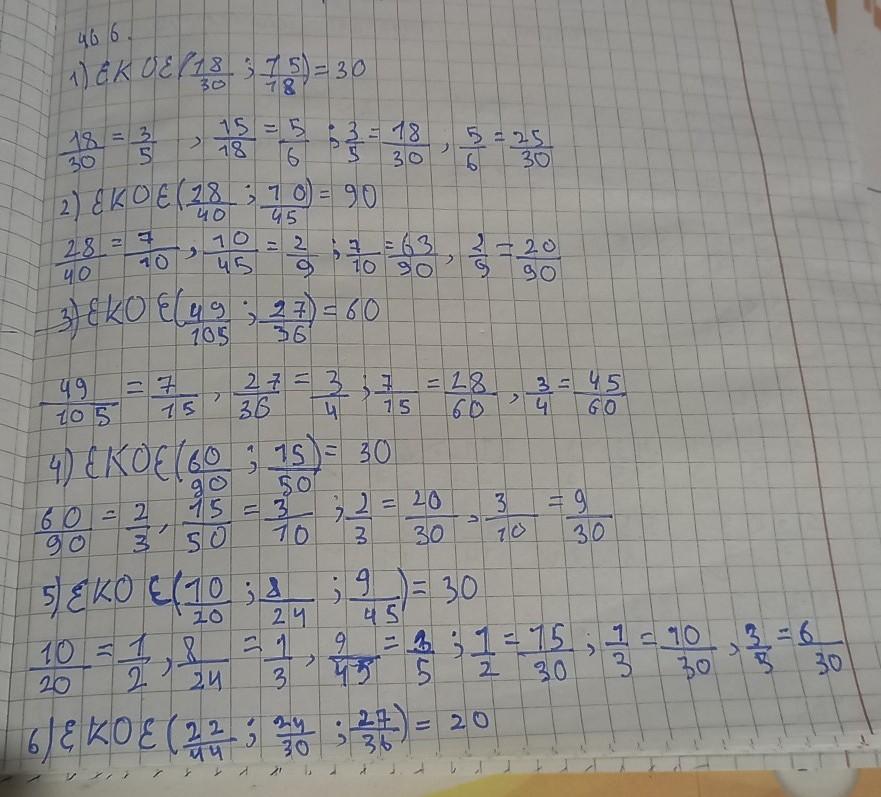 466.
1) ЕКОЕ(18/30 ; 15/18) = 30
18/30 = 3/5 , 15/18 = 5/6 ; 3/5 = 18/30 , 5/6 = 25/30
2) ЕКОЕ(28/40 ; 10/45) = 90
28/40 = 7/10 , 10/45 = 2/9 ; 7/10 = 63/90 , 2/9 = 20/90
3) ЕКОЕ(49/105 ; 27/36) = 60
49/105 = 7/15 , 27/36 = 3/4 ; 7/15 = 28/60 , 3/4 = 45/60
4) ЕКОЕ(60/90 ; 15/50) = 30
60/90 = 2/3 , 15/50 = 3/10 ; 2/3 = 20/30 , 3/10 = 9/30
5) ЕКОЕ(10/20 ; 8/24 ; 9/45) = 30
10/20 = 1/2 , 8/24 = 1/3 , 9/45 = /5 ; 1/2 = 15/30 ; 1/3 = 10/30 , /5 = 6/30
6) ЕКОЕ(22/44 ; 24/30 ; 27/36) = 20